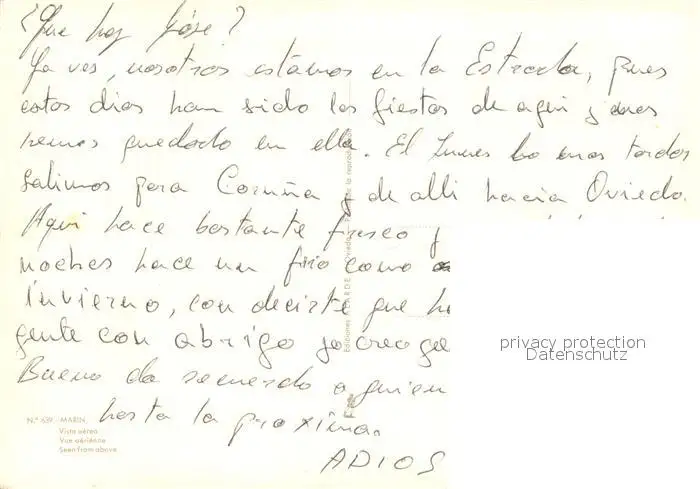 ¿Que hay José?
Ya ves, nosotros estamos en la Estrada, pues
estos dias han sido las fiestas de aqui y nos
hemos quedado en ella. El lunes lo mas tardar
salimos para Coruña y de alli hacia Oviedo.
Aqui hace bastante fresco y
noches hace un frio como
invierno, con decirte que h
gente con abrigo yo creo que
Bueno da recuerdo a quien
hasta la proxima.
ADIOS
Nº 639 - MARIN
Vista aérea
Vue aérienne
Seen from above
Ediciones
Oviedo
la reproducción
privacy protection
Datenschutz